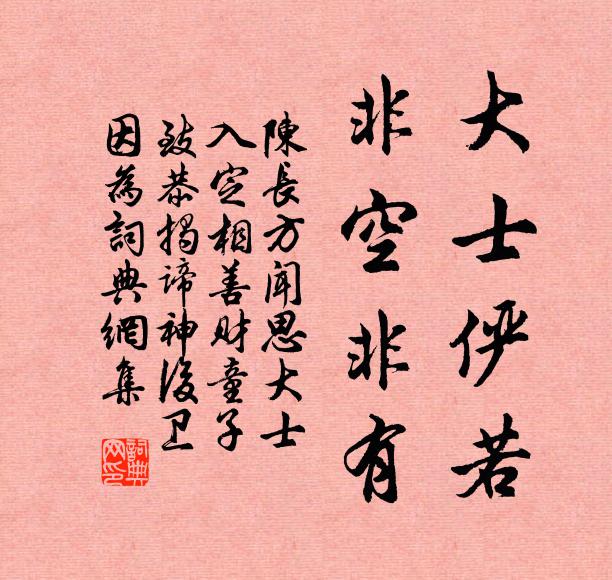 大士俨若
非空非有
陳長方聞思大士
入定相善财童子
致恭揭谛神後卫
因為詞典網集
詞典网印